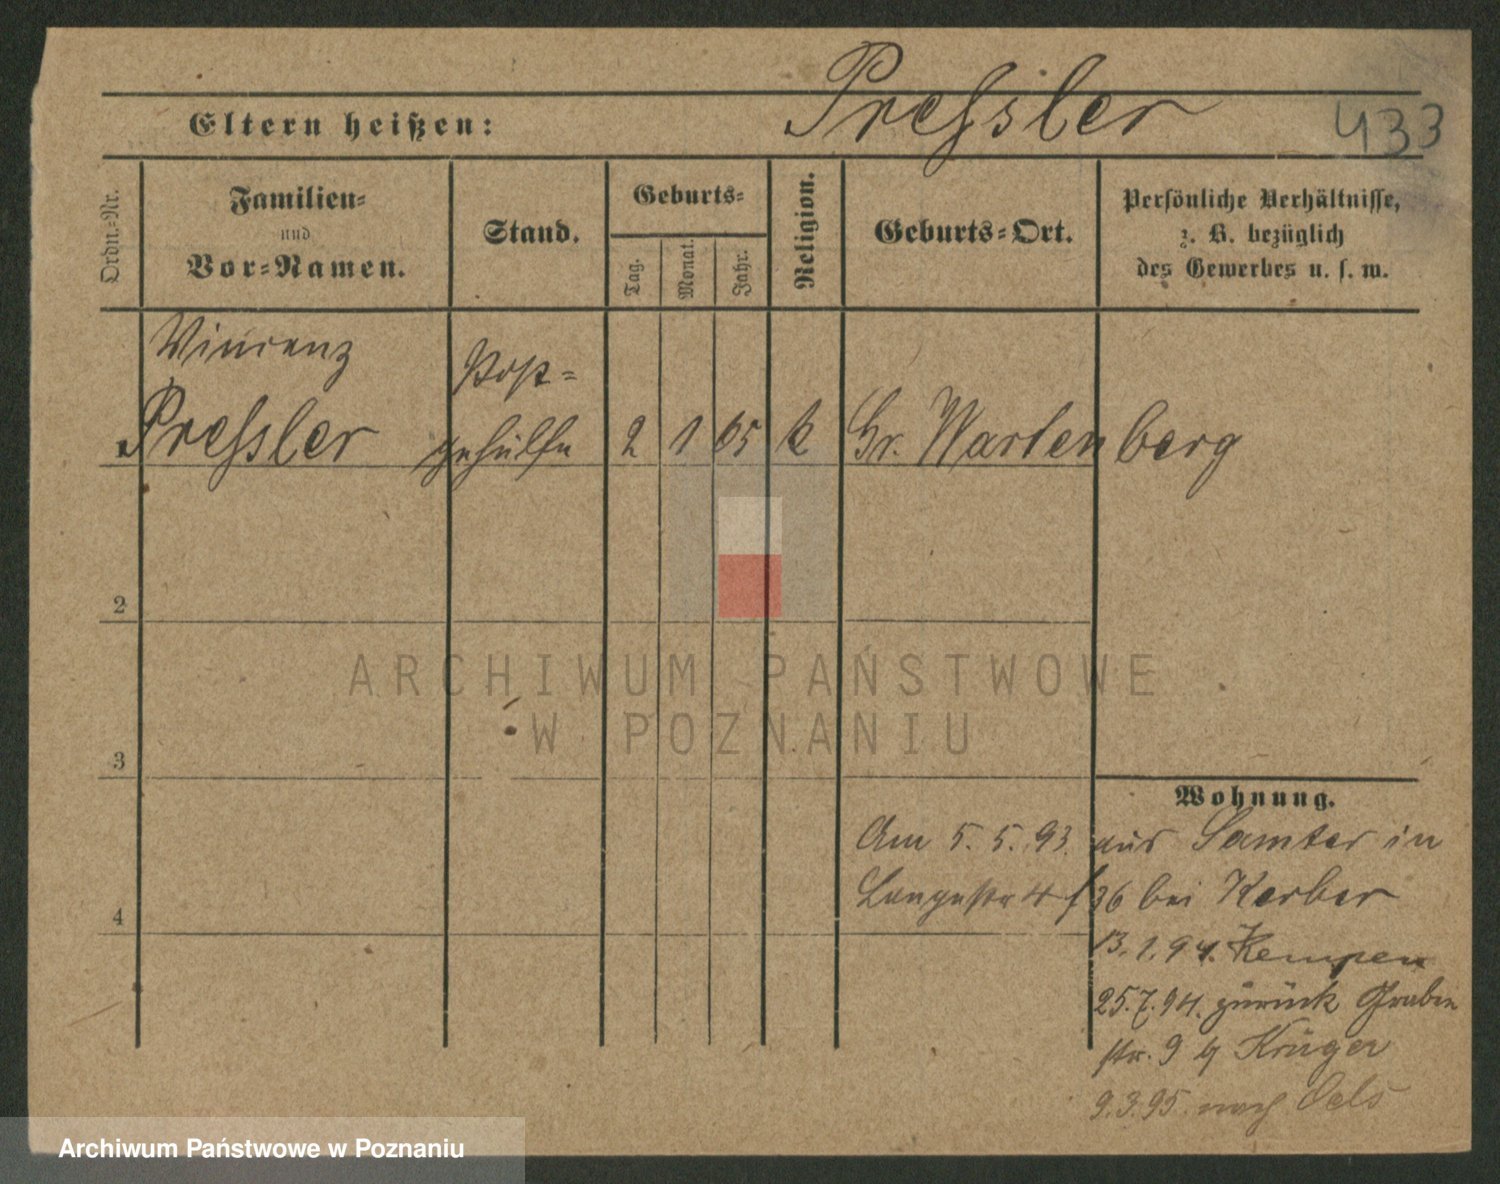 Pressler
433
Eltern heißen:
Ordn.-Nr.
Familien-
und
Vor-Namen.
Stand.
Geburts-
Tag.
Monat.
Jahr.
Religion.
Geburts-Ort.
Persönliche Verhältnisse,
z. B. bezüglich
des Gewerbes u. s. w.
Vincenz Post-
Pressler gehülfe 2 1 65 k Gr. Wartenberg
2
3
4
Wohnung.
Am 5. 5. 93. aus Samter in
Langestr 4 36 bei Kerber
13. 1. 94. Kempen
25. 7. 94. zurück Graben
str. 9 b/ Krüger
9. 3. 95. nach Oels
ARCHIWUM PAŃSTWOWE
W POZNANIU
Archiwum Państwowe w Poznaniu